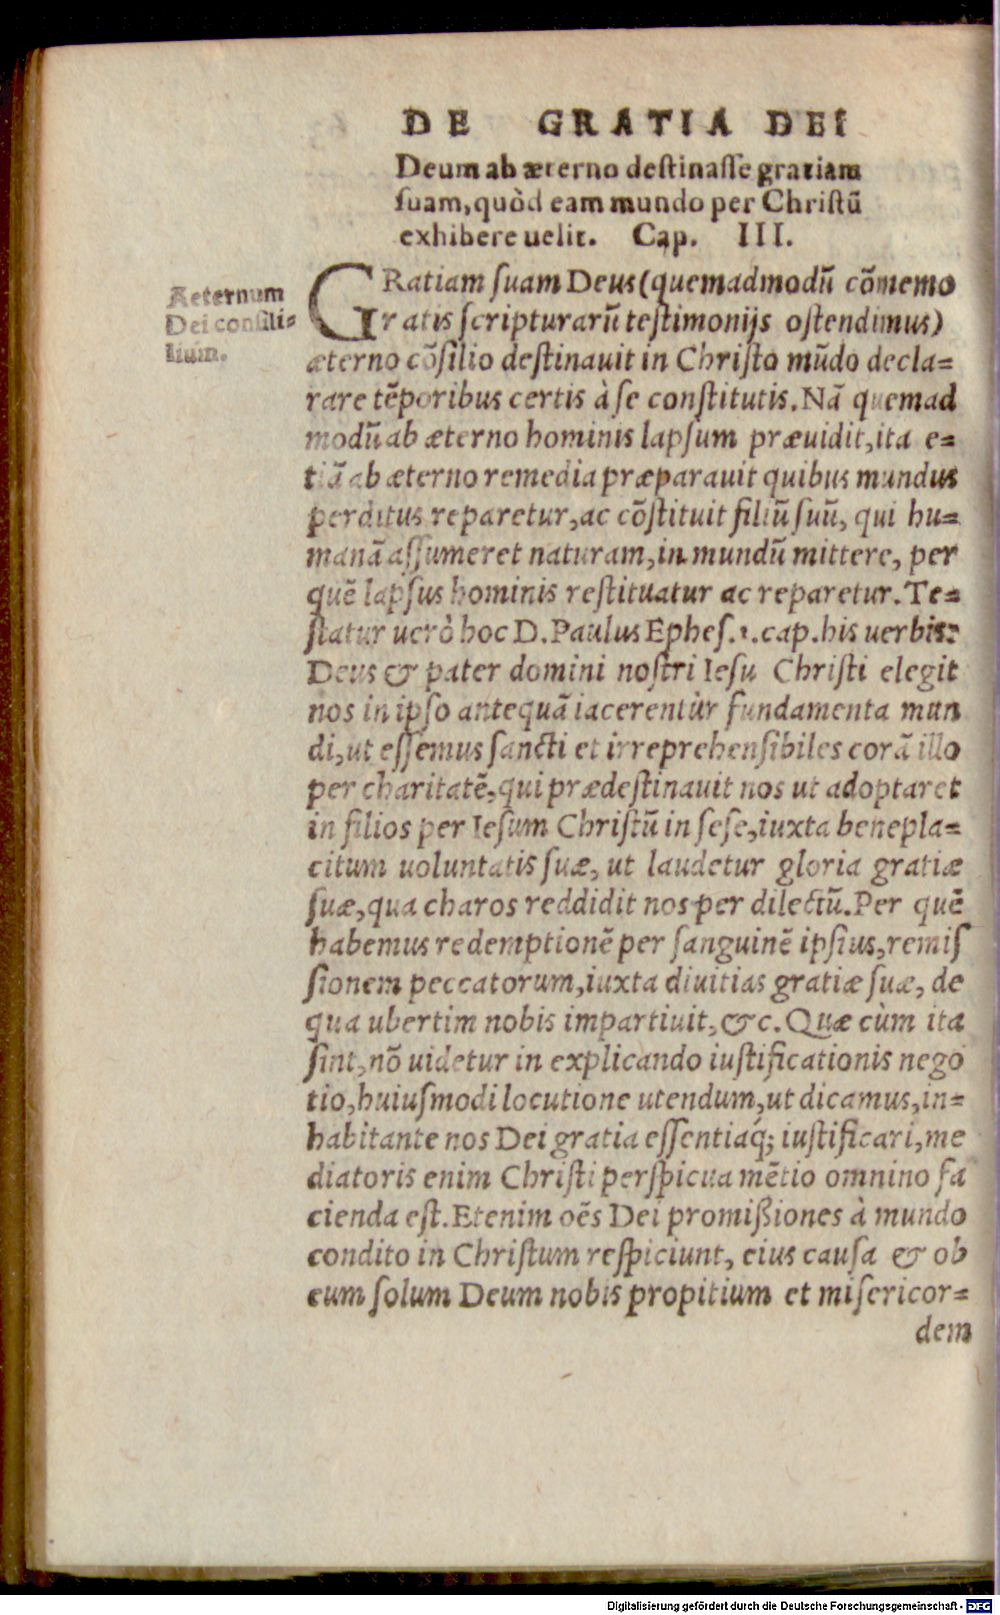 DE GRATIA DEI
Deum ab æterno destinasse gratiam
suam, quòd eam mundo per Christũ
exhibere uelit. Cap. III.
Aeternum
Dei consili-
lium.
GRatiam suam Deus (quemadmodũ cõmemo
ratis scripturarũ testimonijs ostendimus)
æterno cõsilio destinauit in Christo mũdo decla-
rare tẽporibus certis à se constitutis. Nã quemad
modũ ab æterno hominis lapsum præuidit, ita e-
tiã ab æterno remedia præparauit quibus mundus
perditus reparetur, ac cõstituit filiũ suũ, qui hu-
manã assumeret naturam, in mundũ mittere, per
quẽ lapsus hominis restituatur ac reparetur. Te-
statur uerò hoc D. Paulus Ephes. 1. cap. his uerbis:
Deus & pater domini nostri Iesu Christi elegit
nos in ipso antequã iacerentùr fundamenta mun
di, ut essemus sancti et irreprehensibiles corã illo
per charitatẽ, qui prædestinauit nos ut adoptaret
in filios per Iesum Christũ in sese, iuxta benepla-
citum uoluntatis suæ, ut laudetur gloria gratiæ
suæ, qua charos reddidit nos per dilectũ. Per quẽ
habemus redemptionẽ per sanguinẽ ipsius, remis
sionem peccatorum, iuxta diuitias gratiæ suæ, de
qua ubertim nobis impartiuit, &c. Quæ cùm ita
sint, nõ uidetur in explicando iustificationis nego
tio, huiusmodi locutione utendum, ut dicamus, in-
habitante nos Dei gratia essentiaq́; iustificari, me
diatoris enim Christi perspicua mẽtio omnino fa
cienda est. Etenim oẽs Dei promißiones à mundo
condito in Christum respiciunt, eius causa & ob
eum solum Deum nobis propitium et misericor-
dem
Digitalisierung gefördert durch die Deutsche Forschungsgemeinschaft - DFG